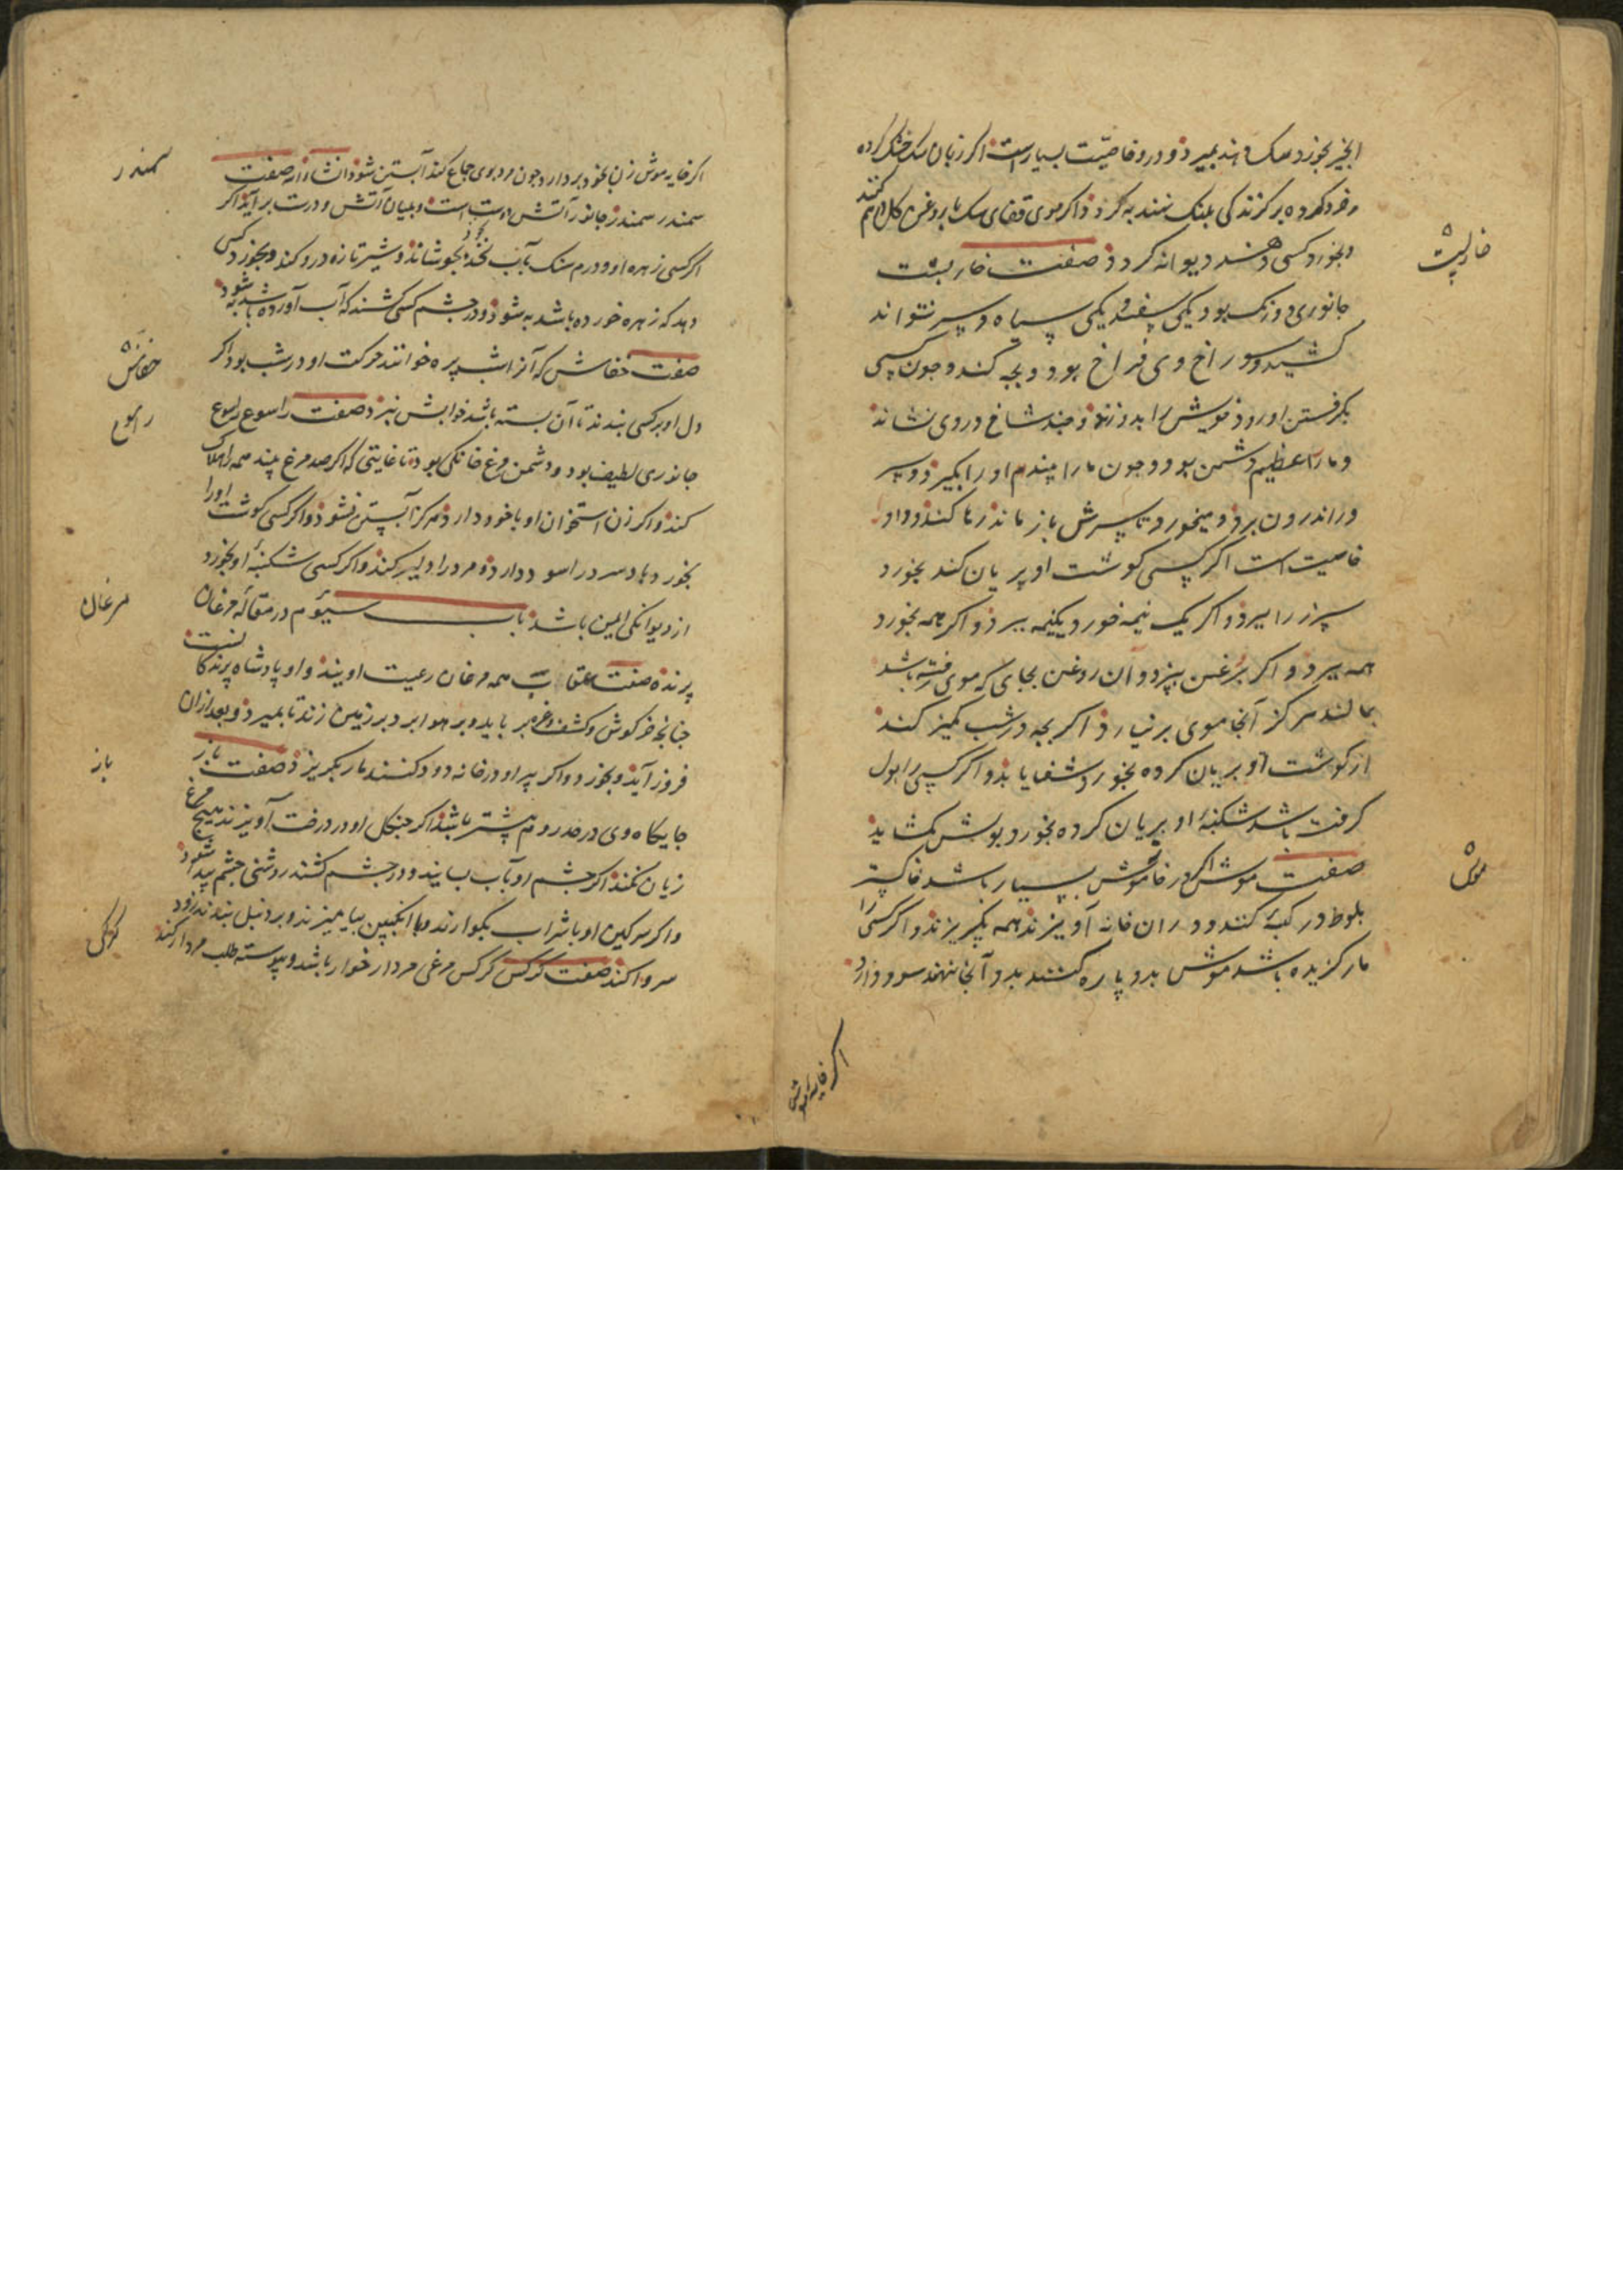 انجیر بخورد سک دهند بمیرد و درو خاصیت بسیارست اکر زبان سک خشک کرده
و خرد کرده بر کزندکی پلنک نهند به کردد و اکر موی قفای سک با روغن کل
و بخورد کسی دهند دیوانه کردد صفت خارپشت
خارپشت
جانوری دو رنک بود یکی سفید و یکی سیاه و سر نتواند
کشید و سوراخ وی فراخ بود و بچه کند و چون کسی
بکرفتن او رود خویش را بدو زند و چند شاخ در وی نشاند
و مار را عظیم دشمن بود و چون مار را بیند دم او را بکیرد و سر
در اندرون برد و میخورد تا سرش باز ماند رها کند و او را
خاصیت است اکر کسی کوشت او بریان کند بخورد
سپرز را ببرد و اکر یک نیمه خورد یکنیمه ببرد و اکر همه بخورد
همه ببرد و اکر بروغن بپزد و آن روغن بجای که موی رفته باشد
بمالند هرکز آنجا موی برنیارد اکر بچه در شب کمیز کند
از کوشت او بریان کرده بخورد شفا یابد و اکر کسی را بول
کرفته باشد شکنبهٔ او بریان کرده بخورد بولش بکشاید
صفت موش اکر در خانه موش بسیار باشد خاکستر
موش
بلوط در کیسه کنند و در ان خانه آویزند همه بکریزند و اکر کسی را
مار کزیده باشد موش بدو پاره کنند بدو آنجا نهند سود دارد
اکر خایه موش
اکر خایه موش زن بخود بردارد چون مرد بوی جماع کند آبستن شود انشاءالله صفت
سمندر
سمندر سمندر جانور آتش است و بمیان آتش و درست برآید اکر
اکر کسی زهره او دو درم سنک بآب نخود بجوشاند و شیر تازه درو کند و بخورد کسی
دهد که زهر خورده باشد به شود و در چشم کسی کشند که آب آورده باشد به شود
صفت خفاش که آنرا شب پره خوانند حرکت او در شب بود اکر
خفاش
دل او بر کسی بندند تا آن بسته باشد خوابش نبرد صفت راسو
جانوری لطیف بود و دشمن مرغ خانکی بود تا غایتی که اکر صد مرغ بیند همه را هلاک
کند و اکر زن استخوان او با خود دارد هرکز آبستن نشود و اکر کسی کوشت او را
بخورد باد سرد را سود دارد و مرد را دلیر کند و اکر کسی شکنبهٔ او بخورد
از دیوانکی ایمن باشد باب سیوم در مقاله مرغان
مرغان
پرنده صفت عقاب همه مرغان رعیت اویند و او پادشاه پرندکانست
چنانچه خرکوش و کشف و غیره برباید و بر هوا برد بر زمین زند تا بمیرد و بعد از ان
فرود آید و بخورد و اکر پر او در خانه دود کنند مار بکریزد صفت باز
باز
جایکاه وی در حد روم بیشتر باشد اکر چنکل او در درخت آویزند هیچ مرغ
زیان نکند اکر چشم او بآب بسایند و در چشم کشند روشنی چشم پیدا شود
و اکر سرکین او با شراب بکوارند و با انکبین بیامیزند و بر دنبل بندند زود
سر وا کند صفت کرکس کرکس مرغی مردار خوار باشد و پیوسته طلب مردار کند
کرکس